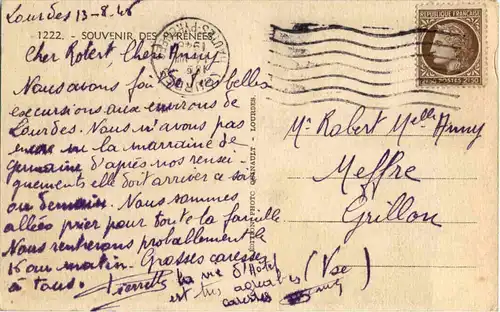 Lourdes 13-8-46
1222. - SOUVENIR DES PYRÉNÉES
Cher Robert Cher Anny
Nous avons fait de belles
excursions aux environs de
Lourdes. Nous n'avons pas
encore vu la marraine de
Germaine d'après nos rensei
gnements elle doit arriver ce soir
ou demain. Nous sommes
allées prier pour toute la famille
Nous rentrerons probablement le
16 au matin. Grosses caresses
à tous. Pierrette
la vie d'Hotel
est très agréable
caresses
POSTES
LOURDES
Mr Robert Melle Anny
Meffre
Grillon
(Vse)